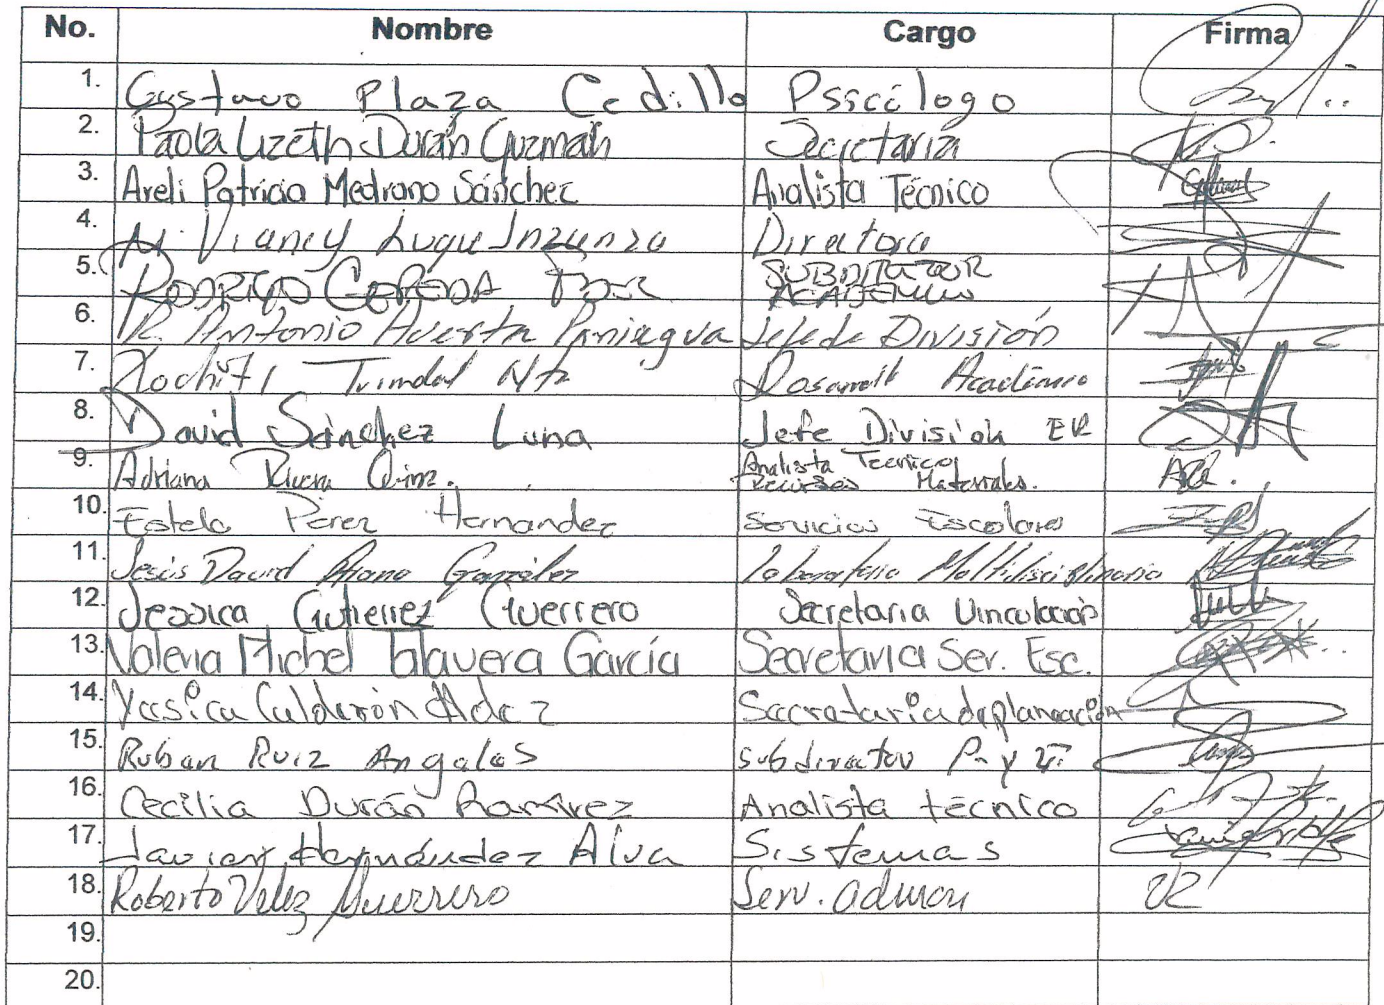 No. Nombre Cargo Firma
1. Gustavo Plaza Cedillo Psicólogo
2. Paola Lizeth Durán Guzmán Secretaria
3. Areli Patricia Medrano Sánchez Analista Técnico
4. M. Vianey Luque Inzunza Directora
5. Rodrigo Cepeda SUBDIRECTOR
ACADEMICO
6. R. Antonio Huerta Paniagua Jefe de División
7. Xochitl Desarrollo Académico
8. David Sánchez Luna Jefe División ER
9. Adriana Rivera Analista Tecnico
Recursos Materiales.
10. Estela Perez Hernandez Servicios Escolares
11. Jesús David González Laboratorio
12. Jessica Gutierrez Guerrero Secretaria Vinculación
13. Valeria Michel Talavera García Secretaria Ser. Esc.
14. Yessica Calderón Secretaria de planeación
15. Ruben Ruiz Angeles subdirector P. y V.
16. Cecilia Durán Ramírez Analista técnico
17. Javier Hernández Alva Sistemas
18. Roberto Velez Guerrero Serv. admon
19.
20.